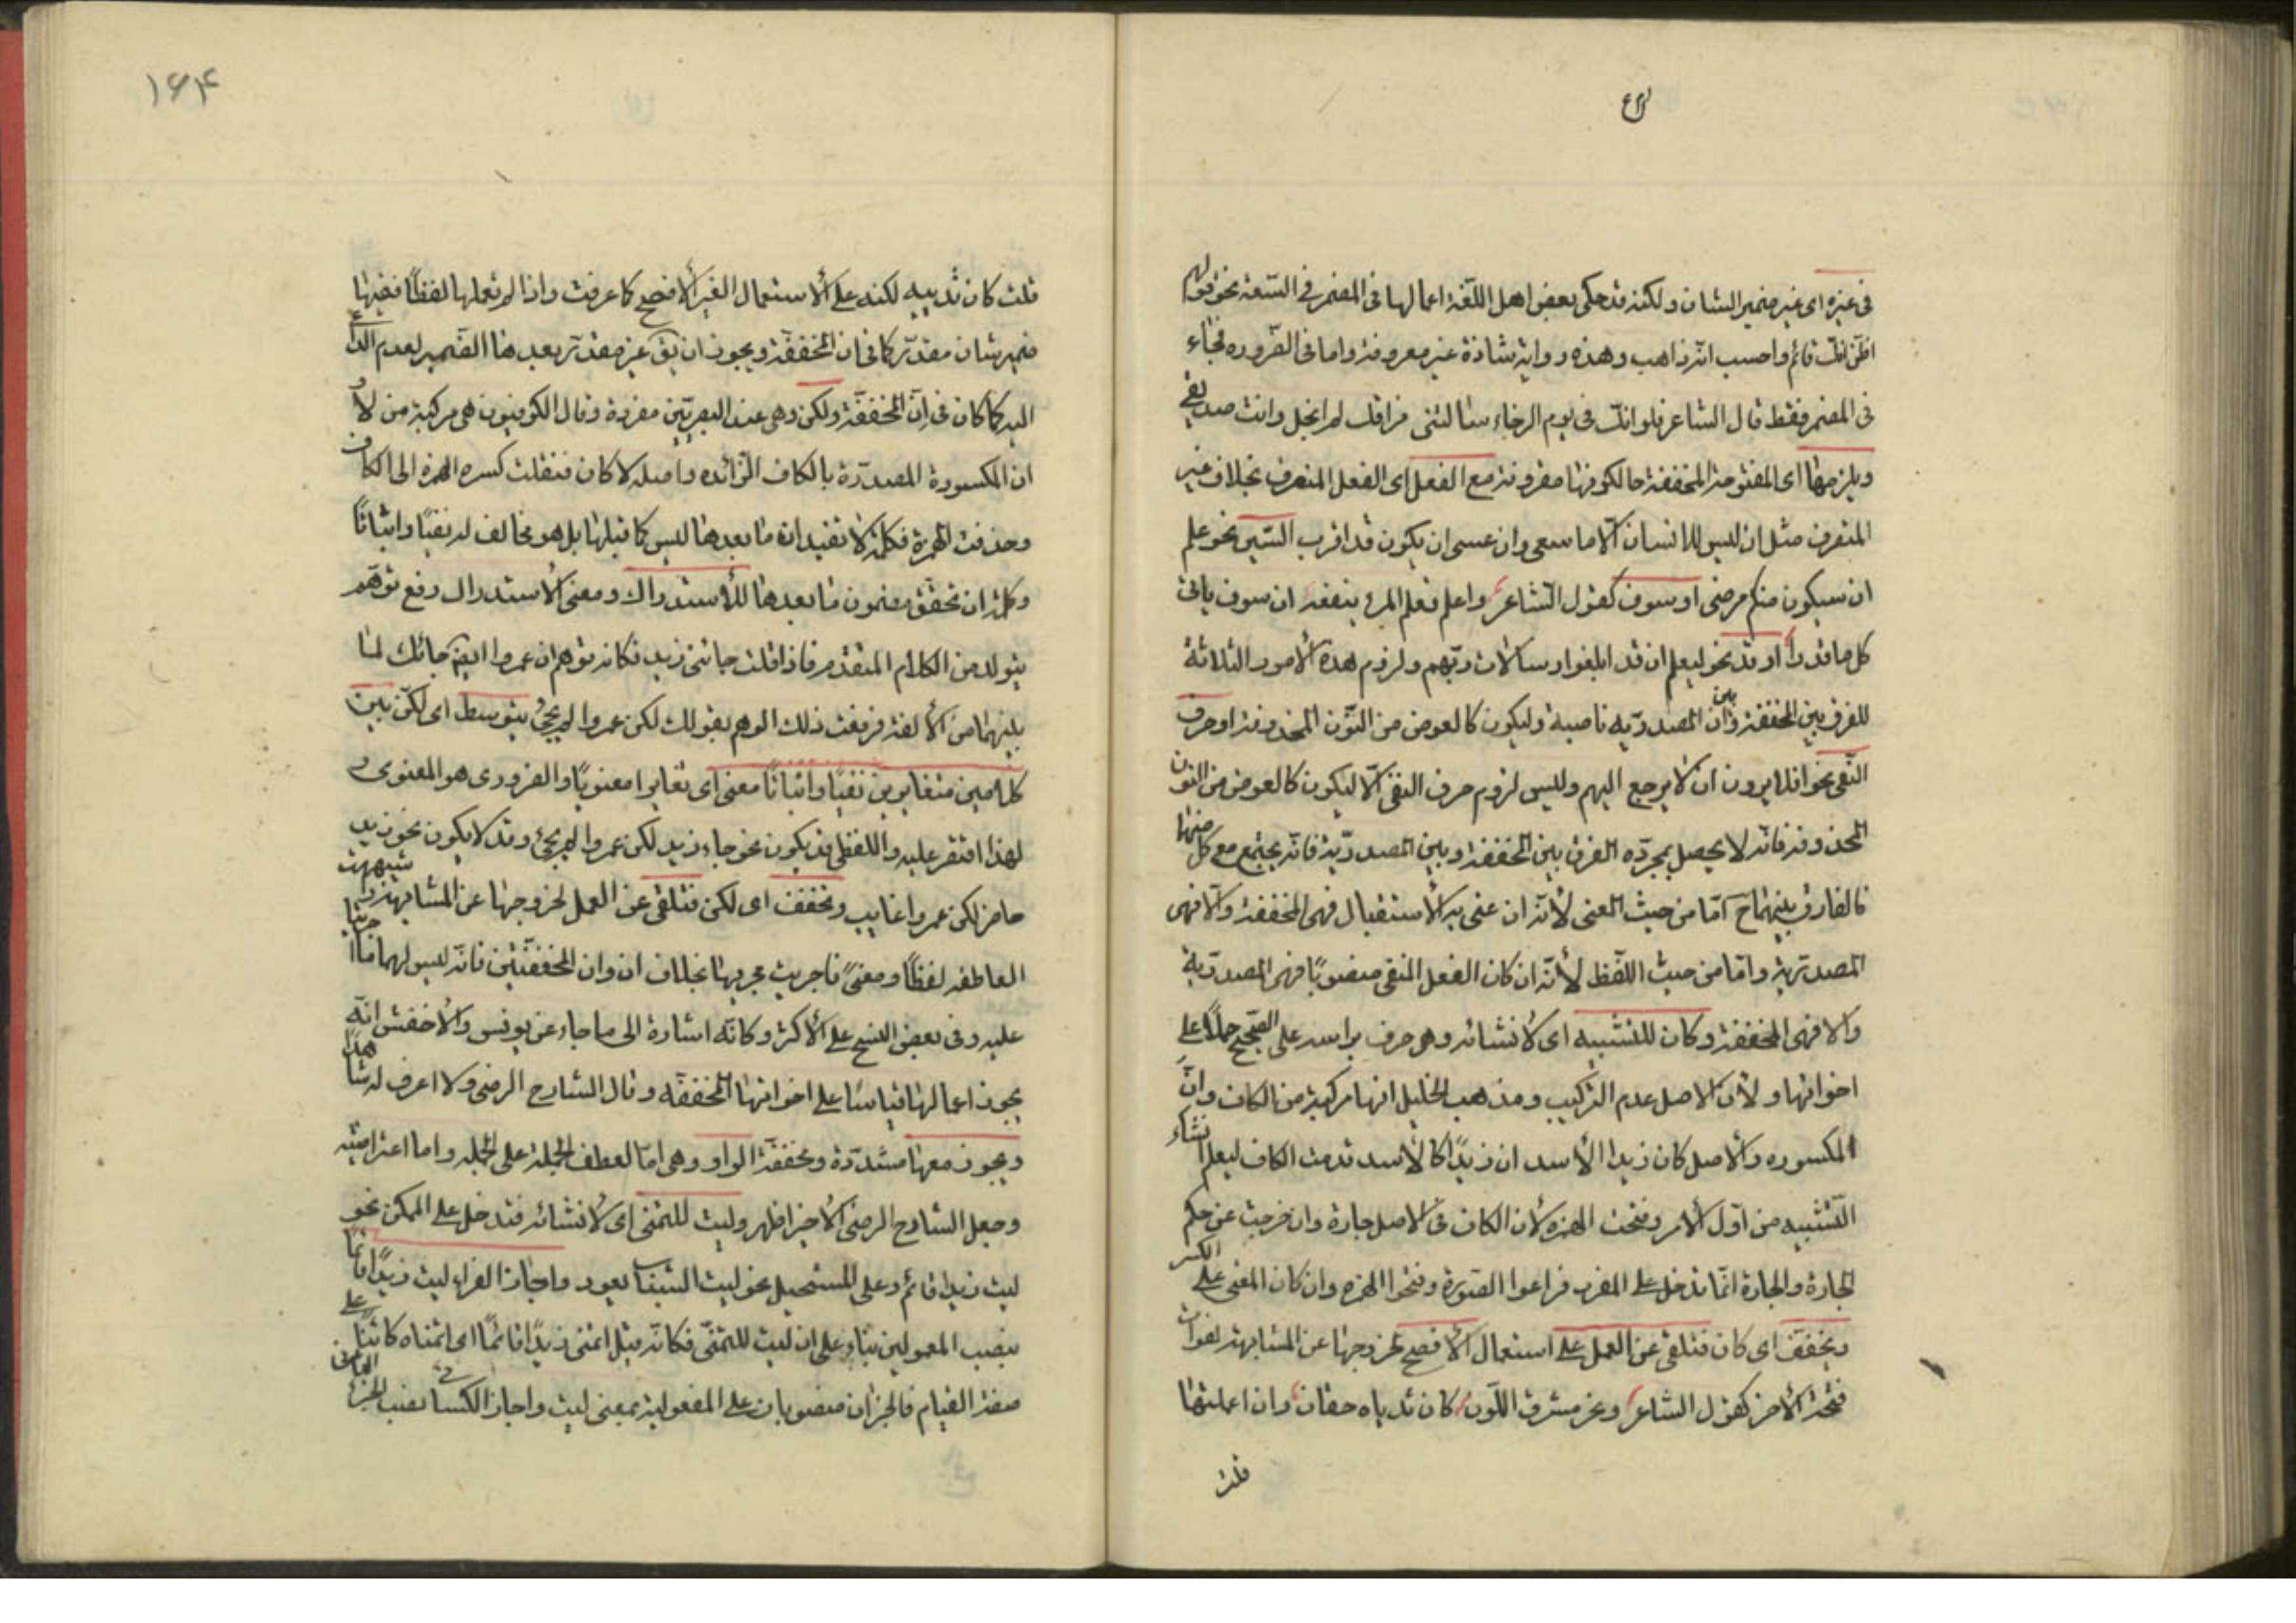 في غيره اى غير ضمير الشان ولكنه قد حكى بعض اهل اللغة اعمالها فى المضمر فى السعة نحو قولهم
اظن انك قائم واحسب انه ذاهب وهذه رواية شاذة غير معروفة واما فى الضروره فجاء
فى المضمر فقط قال الشاعر فلو انك فى يوم الرخاء سئالتنى فراقك لم ابخل وانت صديق
ويلزمها اى المفتوحة المخففة حالكونها مقرونة مع الفعل اى الفعل المتصرف بخلاف غير
المتصرف مثل ان ليس للانسان الا ما سعى وان عسى ان يكون قد اقترب السين نحو علم
ان سيكون منكم مرضى او سوف كقول الشاعر واعلم فعلم المرء ينفعه ان سوف ياتى
كل ما قدرا او قد نحو ليعلم ان قد ابلغوا رسالات ربهم ولزوم هذه الامور الثلاثة
للفرق بين المخففة وبين ان المصدريه ناصبة وليكون كالعوض من النون المحذوفة او حرف
النفى نحو افلا يرون ان لا يرجع اليهم وليس لزوم حرف النفى الا ليكون كالعوض من النون
المحذوفة فانه لا يحصل بمجرده الفرق بين المخففة وبين المصدرية فانه يجتمع مع كل منهما
فالفارق بينهما ح اما من حيث المعنى لأنه ان عنى به الأستقبال فهى المخففة والا فهى
المصدرية واما من حيث اللفظ لأنه ان كان الفعل المنفى منصوبا فهى المصدرية
والا فهى المخففة وكان للتشبيه اى لانشائه وهى حرف براسه على الصحيح حملا على
اخواتها ولأن الاصل عدم التركيب ومذهب الخليل انها مركبة من الكاف وان
المكسوره والأصل كان زيدا الأسد ان زيدا كالأسد قدمت الكاف ليعلم انشاء
التشبيه من اول الأمر وفتحت الهمزه لأن الكاف فى الاصل جارة وان خرجت عن حكم
الجارة والجارة انما تدخل على المفرد فراعوا الصورة وفتحوا الهمزه وان كان المعنى على الكسر
وتخفف اى كان فتلغى عن العمل على استعمال الأفصح لخروجها عن المشابهة لفوات
فتحة الأخر كقول الشاعر ونحر مشرق اللون كان ثدياه حقان وان اعملتها
قلت
۱۶۴
قلت كان ثدييه لكنه على الأستعمال الغير الأفصح كما عرفت واذا لم تعملها لفظا ففيها
ضمير شان مقدر كما فى ان المخففة ويجوز ان يق غير مقدر بعدها الضمير لعدم الداعى
اليه كما كان فى ان المخففة ولكن وهى عند البصريين مفردة وقال الكوفيون هى مركبة من لا و
ان المكسورة المصدرة بالكاف الزائده واصله لا كان فنقلت كسره الهمزه الى الكاف
وحذفت الهمزة فكلمة لا تفيد ان ما بعدها ليس كما قبلها بل هو مخالف له نفيا واثباتا
وكلمة ان تحقق مضمون ما بعدها للأستدراك ومعنى الأستدراك رفع توهم
يتولد من الكلام المتقدم فاذا قلت جائنى زيد فكانه توهم ان عمروا ايضا جائك لما
بينهما من الألفة فرفعت ذلك الوهم بقولك لكن عمروا لم يجئ يتوسط اى لكن بين
كلامين متغايرين نفيا واثباتا معنى اى تغايرا معنويا والضرورى هو المعنوى و
لهذا اقتصر عليه واللفظى قد يكون نحو جاء زيد لكن عمروا لم يجئ وقد لا يكون نحو زيد
حاضر لكن عمروا غايب وتخفف اى لكن فتلغى عن العمل لخروجها عن المشابهة و شبهت
العاطفه لفظا ومعنى فاجريت مجريها بخلاف ان وان المخففتين فانه ليس لهما ما اجريتا
عليه وفى بعض النسخ على الأكثر وكانه اشارة الى ما جاء عن يونس والأخفش انه
يجوز اعمالها قياسا على اخواتها المخففه وقال الشارح الرضى ولا اعرف له شاهدا
ويجوز معها مشددة ومخففة الواو وهى اما لعطف الجملة على الجمله واما اعتراضيه
وجعل الشارح الرضى الأخير اظهر وليت للتمنى اى لانشائه فتدخل على الممكن نحو
ليت زيدا قائم وعلى المستحيل نحو ليت الشباب يعود واجاز الفراء ليت زيدا قائما
بنصب المعمولين بناء على ان ليت للتمنى فكانه قيل اتمنى زيدا قائما اى اتمناه كائنا على
صفة القيام فالجزان منصوبان على المفعولية بمعنى ليت واجاز الكسائى نصب الجزء الثانى